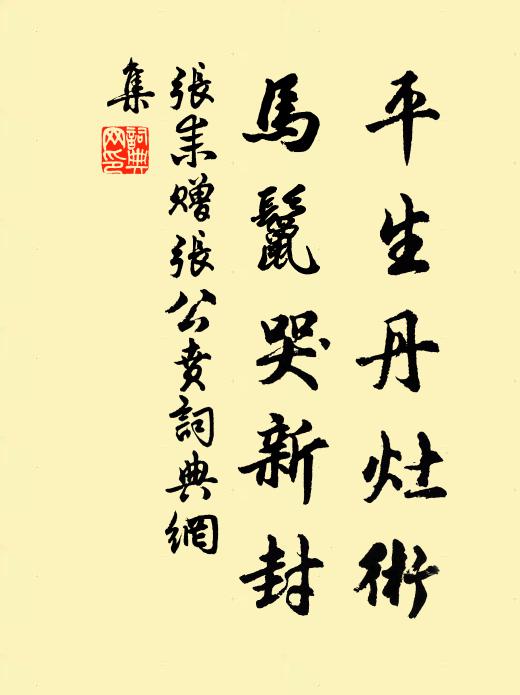 平生丹灶術
馬鬣哭新封
張耒贈張公賁詞典網
集
詞典網印